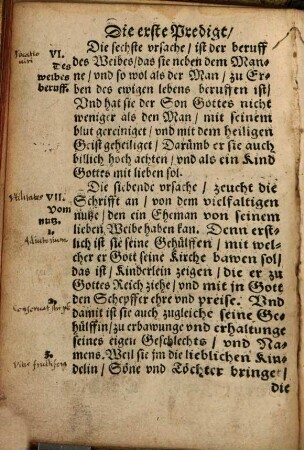 Die erste Predige/
VI.
Des
weibes
beruff.
Die sechste vrsache/ ist der beruff
des Weibes/ das sie neben dem Man-
ne/ vnd so wol als der Man/ zu Er-
ben des ewigen lebens beruffen ist/
Vnd hat sie der Son Gottes nicht
weniger als den Man/ mit seinem
blut gereiniget/ vnd mit dem heiligen
Geist geheiliget/ Darümb er sie auch
billich hoch achten/ vnd als ein Kind
Gottes mit lieben sol.
VII.
Vom
nutz.
1.
Adiutorium
Die siebende vrsache/ zeucht die
Schrifft an/ von dem vielfaltigen
nutze/ den ein Eheman von seinem
lieben Weibe haben kan. Denn erst-
lich ist sie seine Gehülffen/ mit wel-
cher er Gott seine Kirche bawen sol/
das ist/ Kinderlein zeigen/ die er zu
Gottes Reich ziehe/ vnd mit jn Gott
den Schepffer ehre vnd preise. Vnd
damit ist sie auch zugleiche seine Ge-
hülffin/ zu erbawunge vnd erhaltunge
seines eigen Geschlechts/ vnd Na-
mens. Weil sie jm die lieblichen Kin-
delin/ Söne vnd Töchter bringet/
die
2.
3.